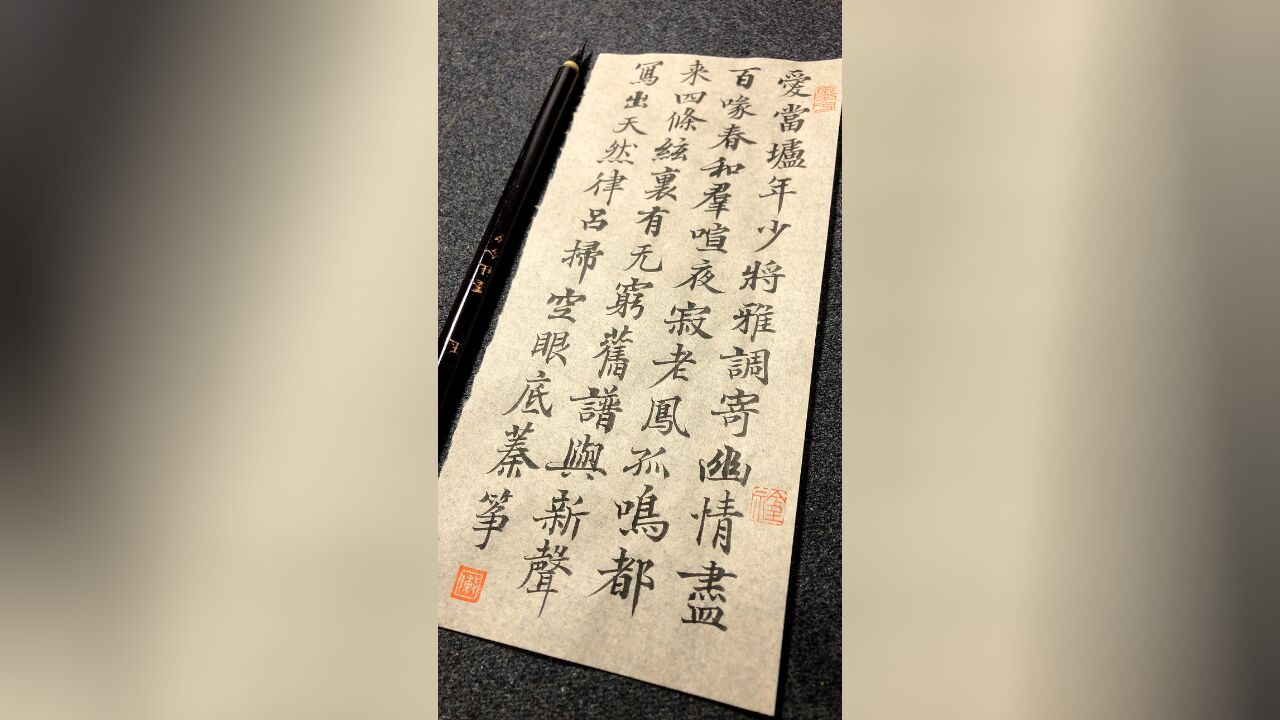 愛當壚年少將雅調寄幽情盡
百喙春和羣喧夜寂老鳳孤鳴都
来四條絃裏有无窮舊譜與新聲
寫出天然律呂掃空眼底蓁筝